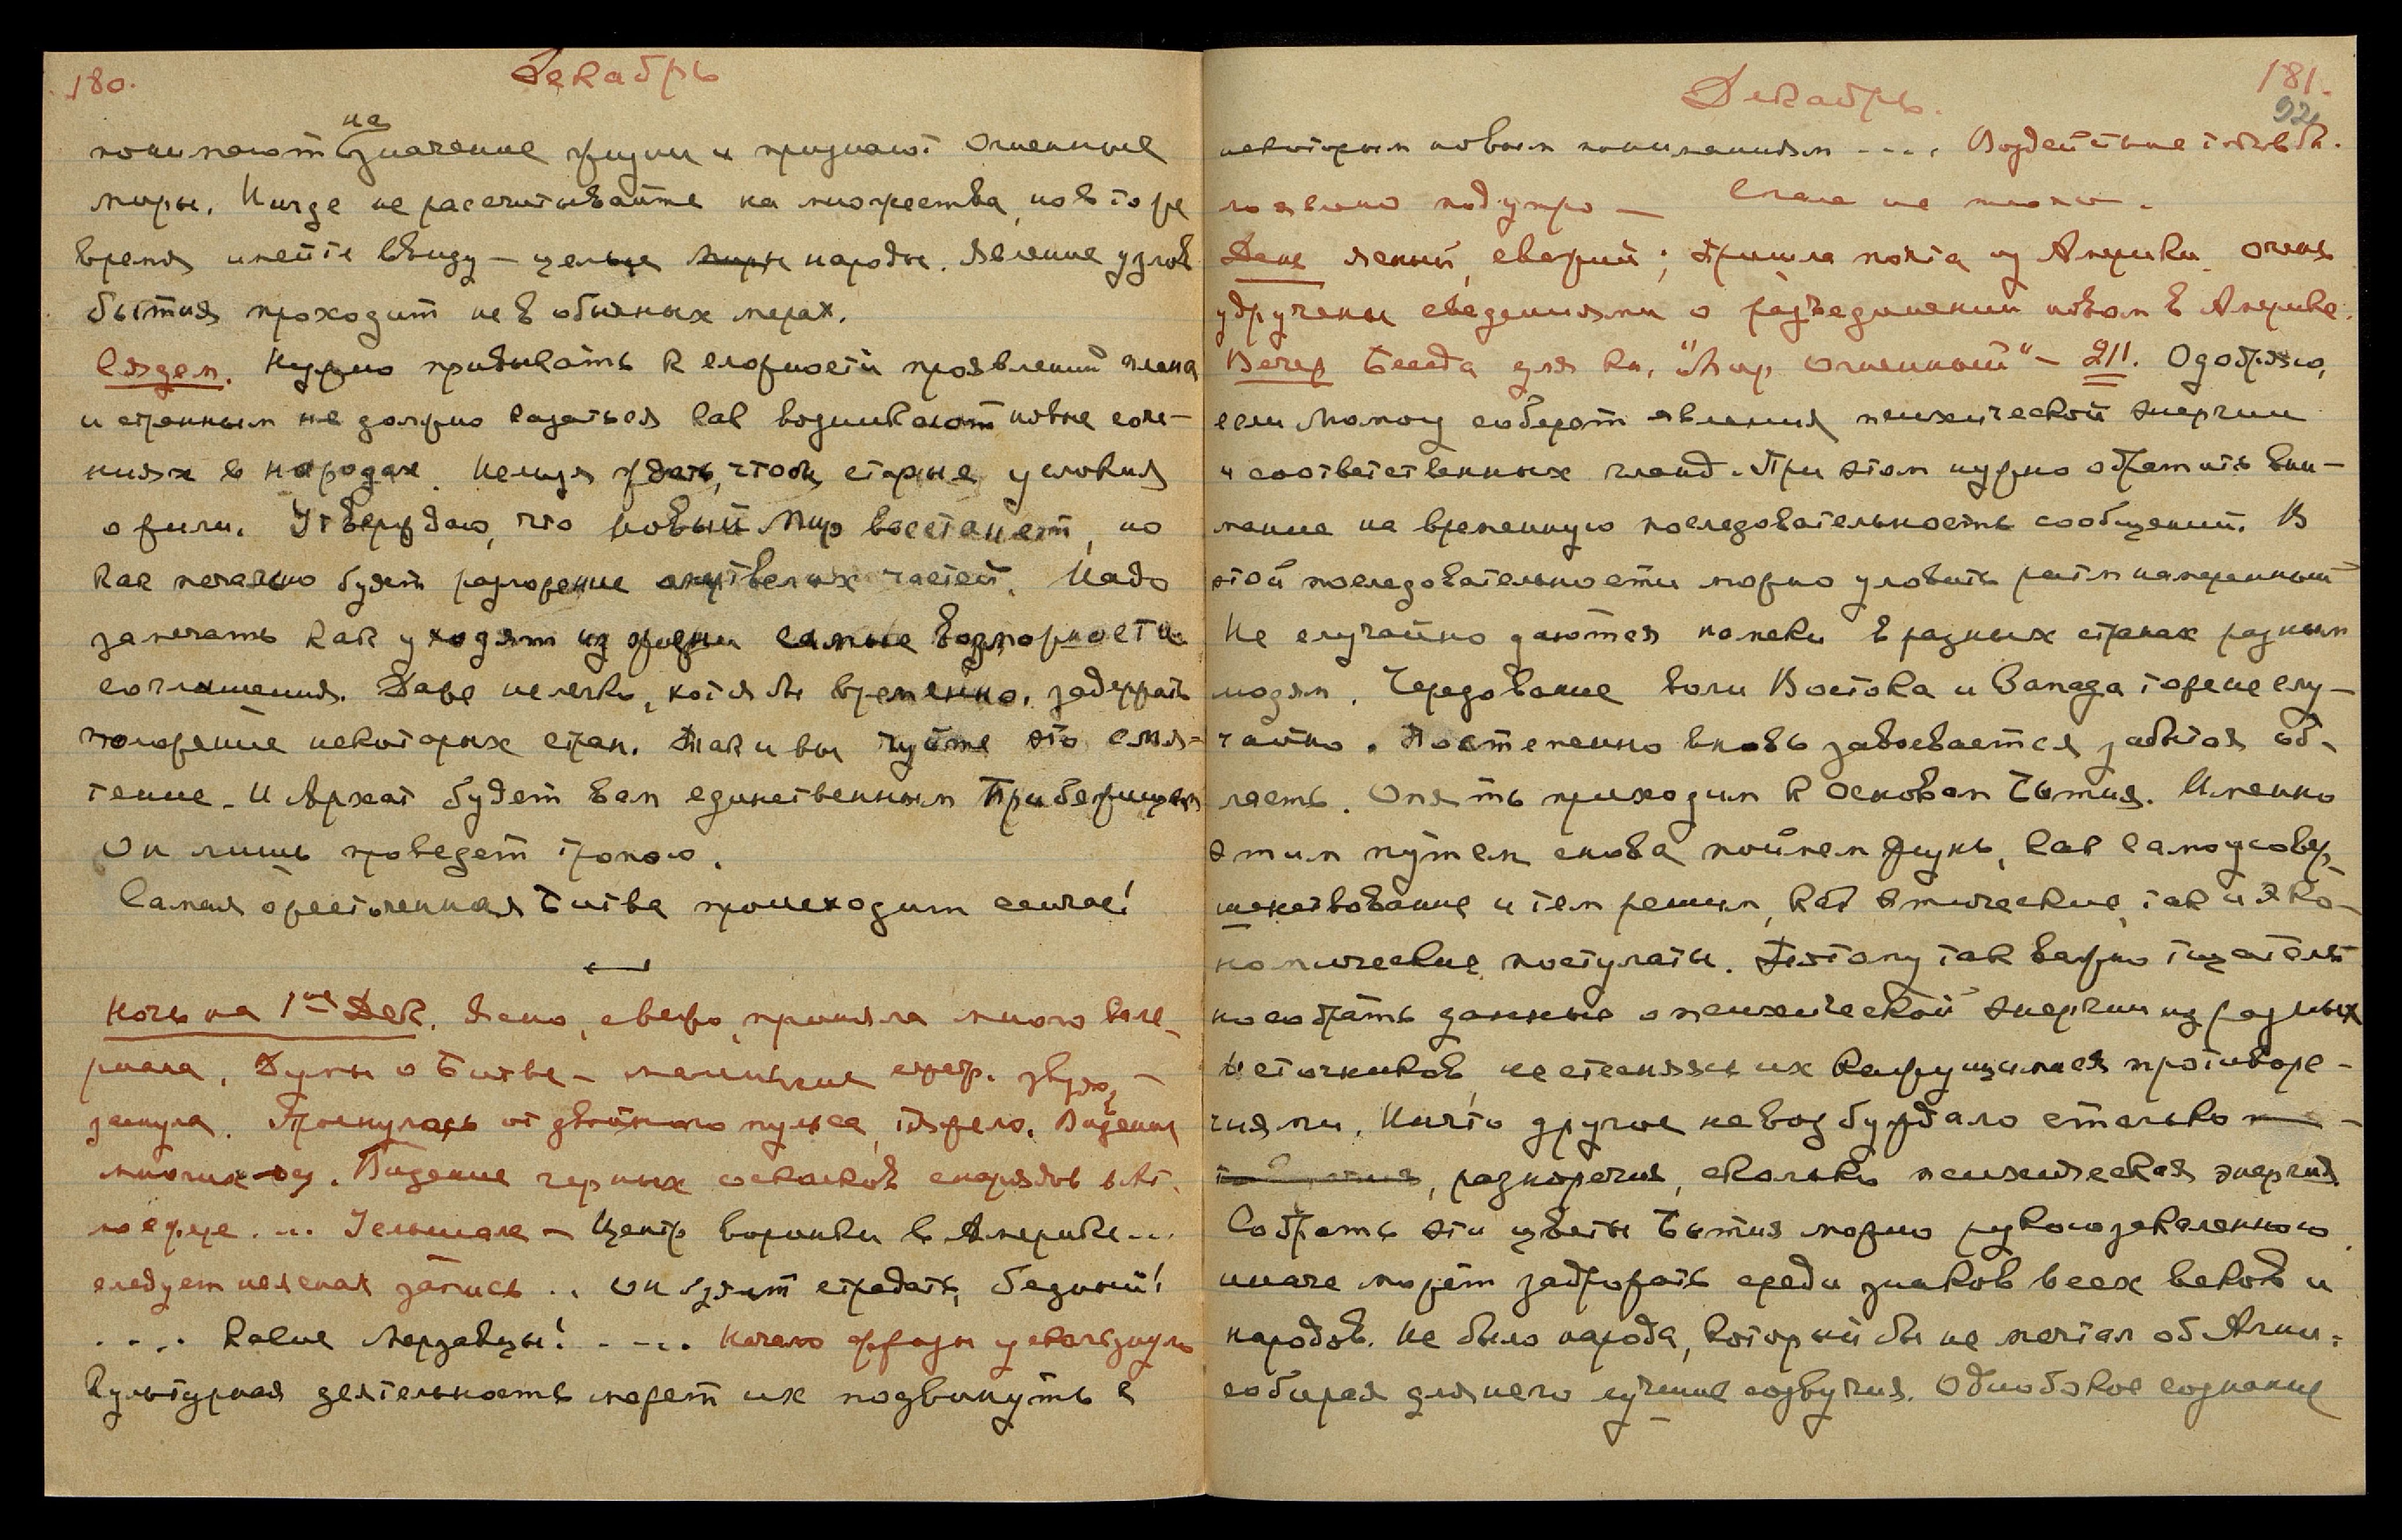 180.
Декабрь
не
понимают значение жизни и признают Огненные
миры. Нигде не рассчитывайте на множества, но в то же
время имейте ввиду – целые миры народы. Явление узлов
бытия проходит не в обычных мерах.
Сязаем. Нужно привыкать к сложности проявлений плана
и странным не должно казаться как возникают новые соче-
ния в народах. Нельзя ждать, чтобы старые условия
ожили. Утверждаю, что новый Мир восстанет, но
как печально будет разложение омертвелых частей. Надо
замечать как уходят из жизни самые возможности
соглашения. Даже нелегко, хотя бы временно, задержать
положение некоторых стран. Так и вы чуйте это смя-
тение. И Архат будет вам единственным Прибежищем
Он лишь проведет тропою.
Самая ожесточенная Битва происходит сейчас!
Ночь на 1ое Дек. Ясно, свежо, приняла много вале-
риана. Думы о Битве –
заснула. Проснулась от двойного пульса, тяжело. Видения
многих лиц. Видение черных осколков снарядов в Ат.
мосфере ... Услышала – Центр воронки в Америке...
следует неясная запись .. Он будет страдать, бедный!
.... какие Мерзавцы! .... Начало фразы ускользнуло
Культурная деятельность может их подвинуть к
181.
92
Декабрь.
некоторым новым пониманиям .... Воздействие токов бы.
ло явлено под утро – Спала не плохо.
День ясный, свежий; Пришла почта из Америки. Очень
удручены сведениями о разъединении новом в Америке.
Вечер Беседа для кн. "Мир Огненный" – 211. Одобряю,
если молодой соберет явления психической энергии
и соответственных гланд. При этом нужно обратить вни-
мание на временную последовательность сообщений. В
этой последовательности можно уловить ритм намеренный
Не случайно даются намеки в разных странах разным
людям. Чередование воли Востока и Запада тоже не слу-
чайно. Постепенно вновь завоевывается забытая об-
ласть. Опять приходим к Основам Бытия. Именно
этим путем снова поймем Жизнь, как самоусовер-
шенствование и тем решим, как этические, так и эко-
номические постулаты. Поэтому так важно тщатель-
но собрать данные о психической энергии из разных
источников, не стесняясь их кажущимися противоре-
чиями. Ничто другое не возбуждало столько
разноречия, сколько психическая энергия
Собрать эти цветы Бытия можно рукою закаленною
иначе может задрожать среди знаков всех веков и
народов. Не было народа, который бы не мечтал об Агни,
собирая для него лучшие созвучия. Однобокое сознание